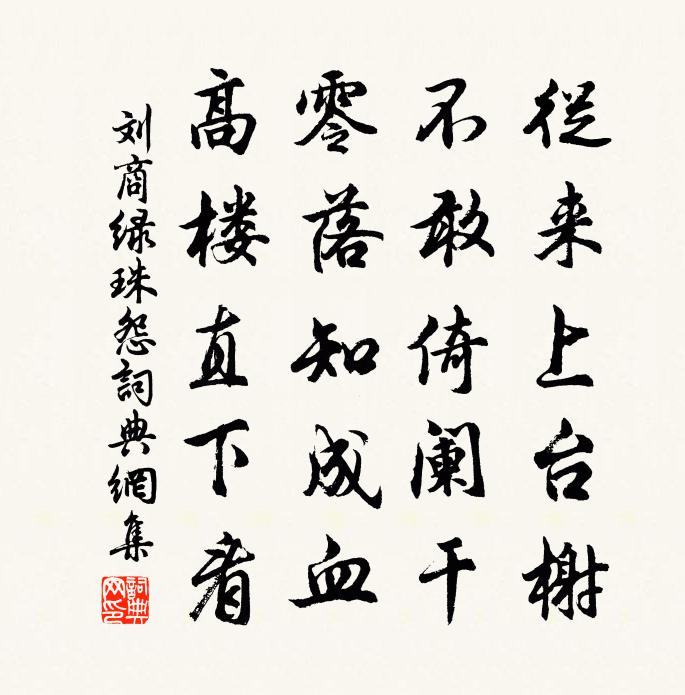 從来上台榭
不敢倚阑干
零落知成血
高楼直下看
刘商绿珠怨詞典網集
詞典网印